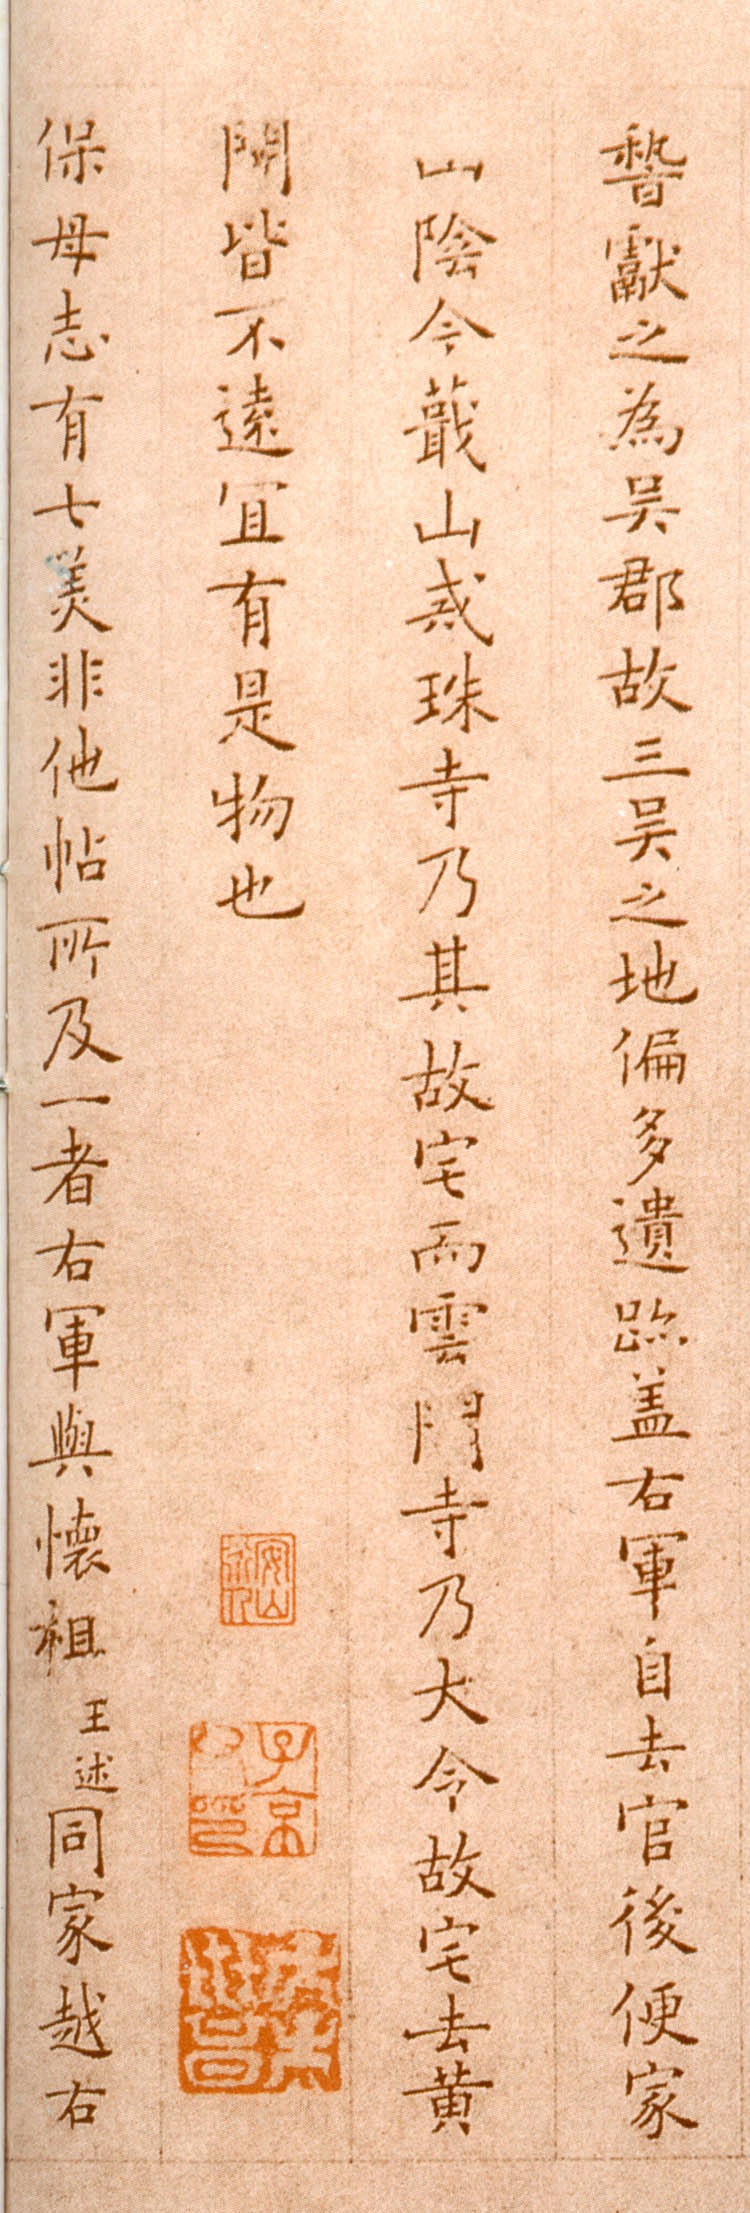 獻之為吳郡故三吳之地偏多遺跡盖右軍自去官後便家
山陰今蕺山戒珠寺乃其故宅而雲門寺乃大令故宅去黃
閍皆不遠宜有是物也
子京父印
保母志有七美非他帖所及一者右軍與懷祖王述同家越右